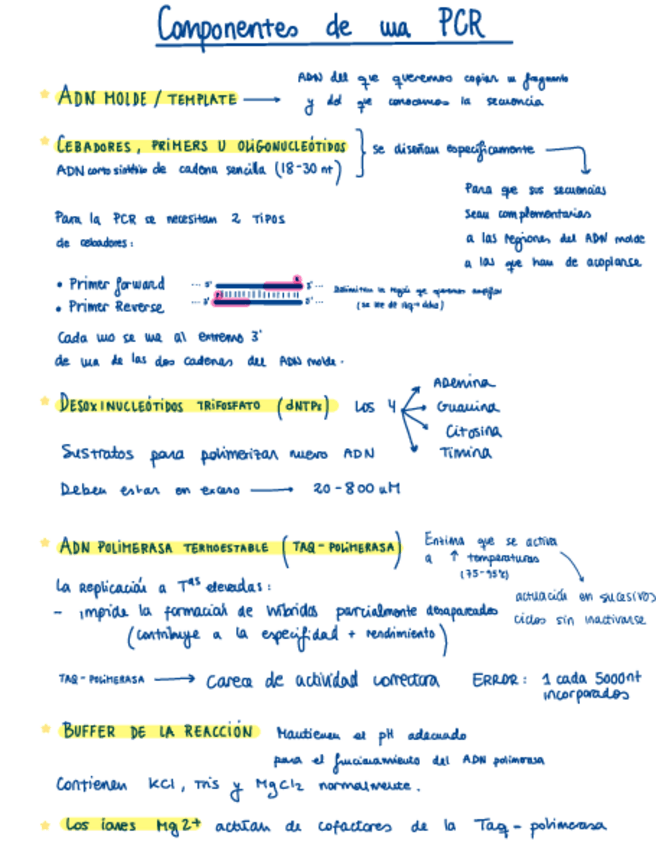 Componentes de una PCR
ADN MOLDE / TEMPLATE → ADN del que queremos copiar un fragmento
y del que conocemos la secuencia
CEBADORES, PRIMERS U OLIGONUCLEÓTIDOS
ADN corto sintético de cadena sencilla (18-30 nt)
se diseñan específicamente
Para que sus secuencias
sean complementarias
a las regiones del ADN molde
a las que han de acoplarse
Para la PCR se necesitan 2 TIPOS
de cebadores:
• Primer forward
• Primer Reverse
... 3' 5' ...
... 5' 3' ...
Delimitan la región que queremos amplificar
Cada uno se une al extremo 3'
de una de las dos cadenas del ADN molde.
DESOXINUCLEÓTIDOS TRIFOSFATO (dNTPs) LOS 4
Adenina
Guanina
Citosina
Timina
Sustratos para polimerizar nuevo ADN
Deben estar en exceso → 20-800 uM
ADN POLIMERASA TERMOESTABLE (TAQ-POLIMERASA)
Enzima que se activa
a ↑ temperaturas
(75-95ºC)
actuación en sucesivos
ciclos sin inactivarse
La Replicación a Tas elevadas:
- impide la formación de híbridos parcialmente desapareados
(contribuye a la especifidad + rendimiento)
TAQ-POLIMERASA → Carece de actividad correctora
ERROR: 1 cada 5000nt
incorporados
BUFFER DE LA REACCIÓN Mantienen el pH adecuado
para el funcionamiento del ADN polimerasa
Contienen KCl, Tris y MgCl2 normalmente.
Los iones Mg2+ actúan de cofactores de la Taq-polimerasa